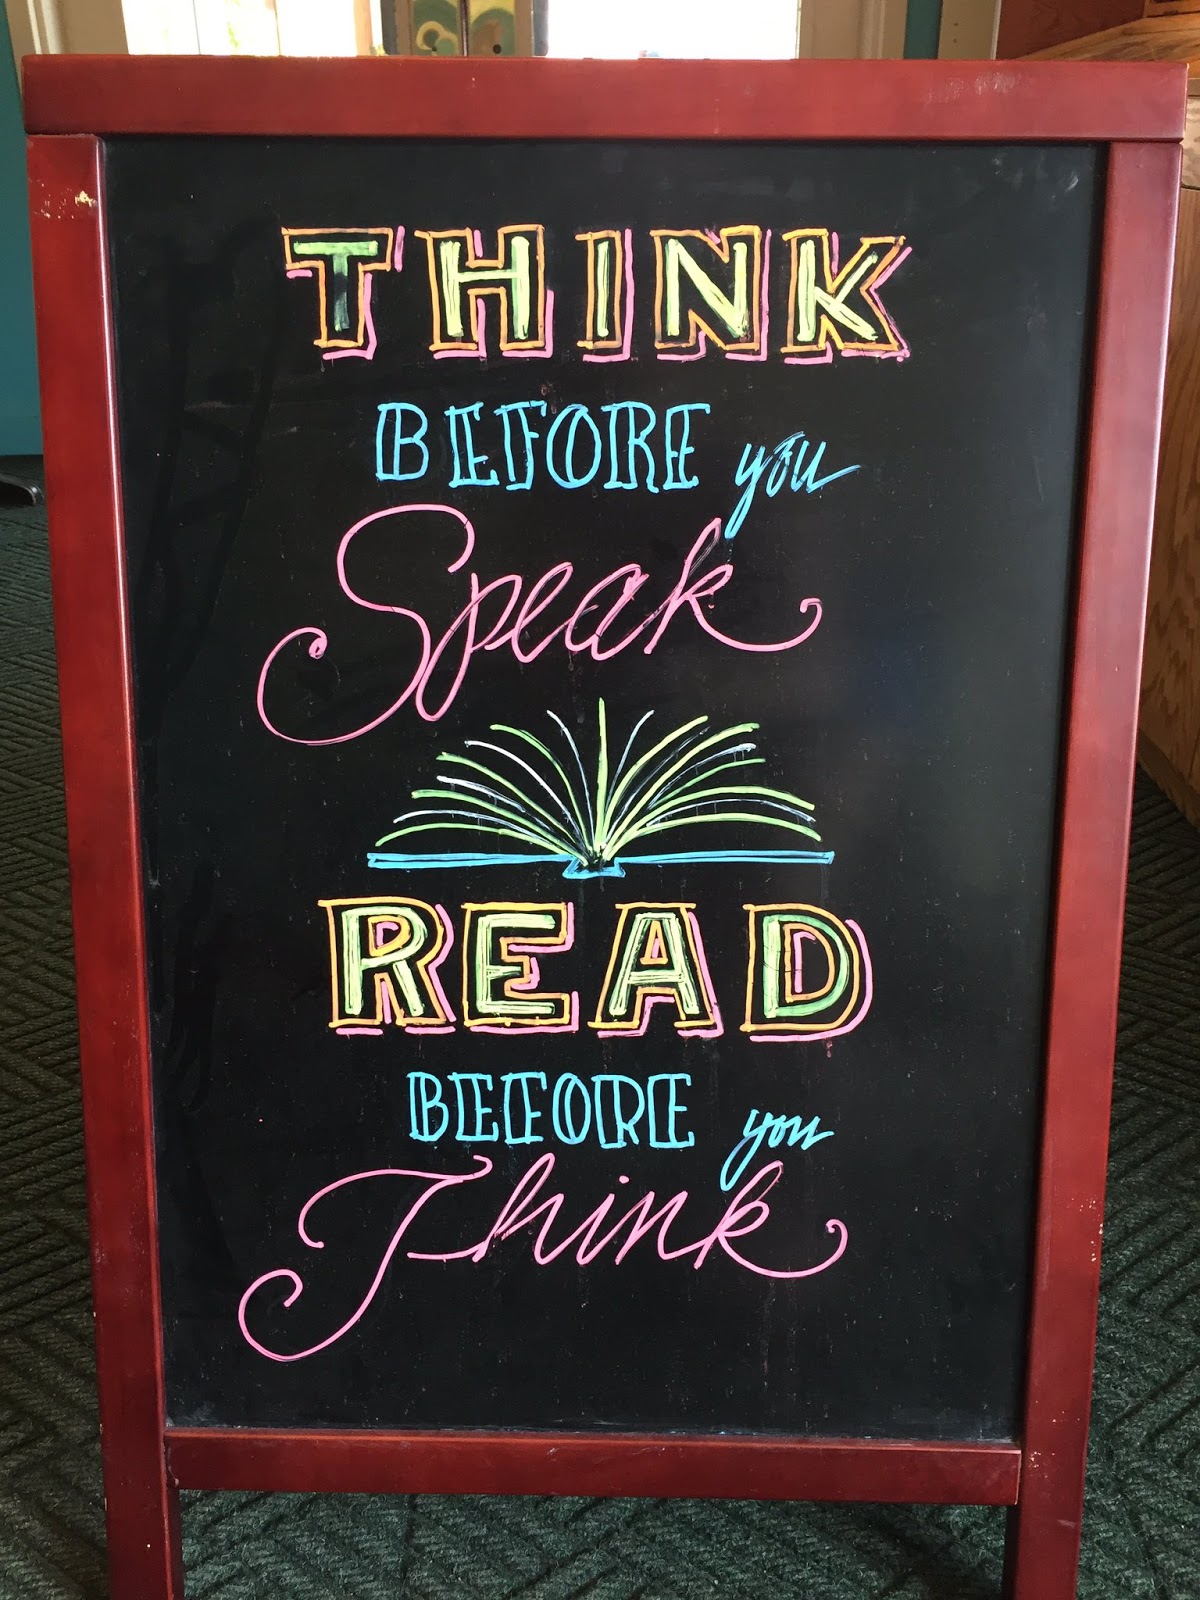 THINK
BEFORE you
Speak
READ
BEFORE you
Think